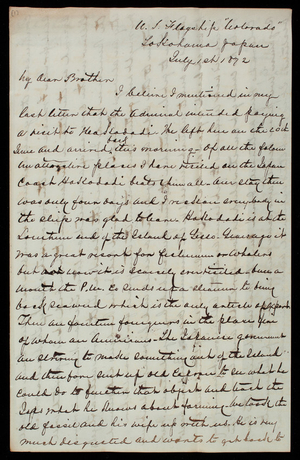 U.S. Flagship "Colorado"
Yokohama Japan
July 1st 1872
My dear Brother
I believe I mentioned in my
last letter that the Admiral intended paying
a visit to Hakodadi. We left here on the
June and arrived this morning. Of all the
unattractive places I have visited on the Japan
Coast Hakodadi beats them all. Our stay there
was only four days and I reckon everybody in
the ship was glad to leave. Hakodadi is at the
Southern end of the Island of Yesso. Years ago it
was a great resort for fishermen or Whalers
but now it is scarcely ever visited. Once a
month the P.M. Co sends up a steamer to bring
back seaweed which is the only article of export.
There are fourteen foreigners in the place four
of whom are Americans. The Japanese government
are striving to make something out of the Island
and therefore sent up old Capron to see what he
could do to further that object and teach the
Japs what he knows about farming. We took the
old fossil and his wife up with us. He is very
much disgusted and wants to get back to